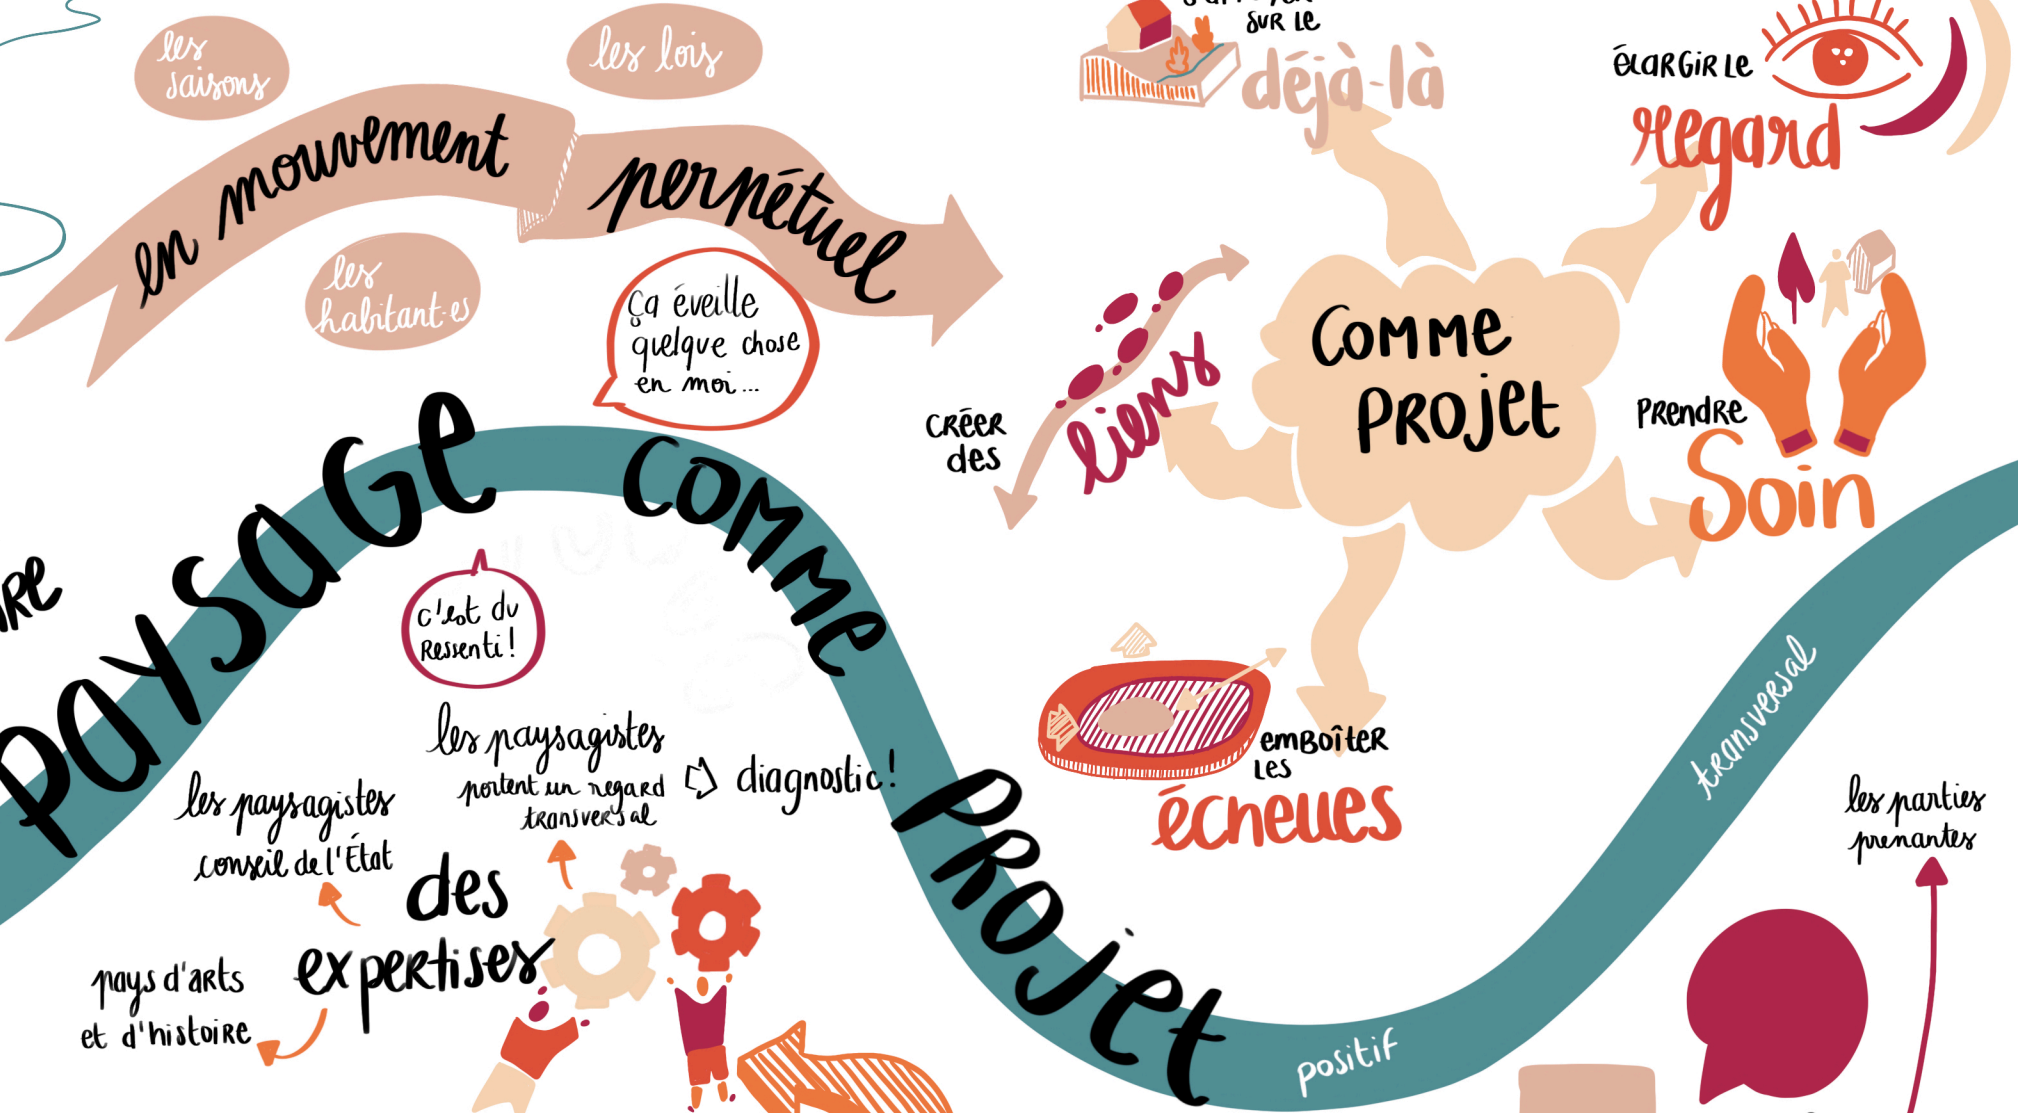 les
saisons
les lois
en mouvement perpétuel
les
habitant·es
Ça éveille
quelque chose
en moi...
SUR LE
déjà-là
ÉLARGIR LE
regard
COMME
PROJET
CRÉER
des
liens
PRENDRE
Soin
EMBOÎTER
LES
écheLLes
PAYSAGE COMME PROJET
c'est du
Ressenti!
les paysagistes
portent un regard
transversal
diagnostic!
les paysagistes
conseil de l'État
des
expertises
pays d'arts
et d'histoire
positif
transversal
les parties
prenantes